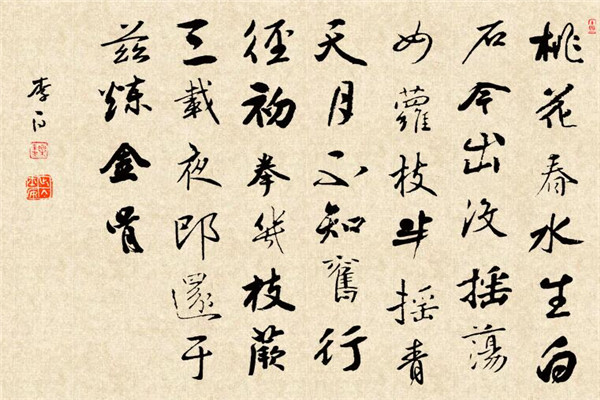 桃花春水生白
石今出没摇蕩
女蘿枝半摇青
天月不知舊行
径初拳幾枝蕨
三載夜郎還于
兹煉金骨
李白